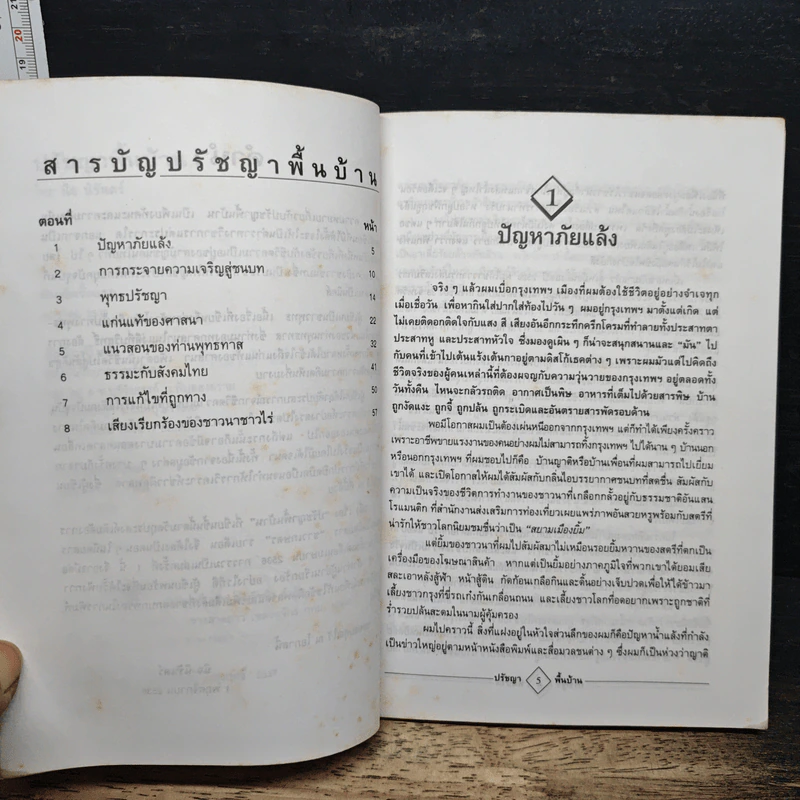 19 20 21
สารบัญปรัชญาพื้นบ้าน
ตอนที่ หน้า
1 ปัญหาภัยแล้ง 5
2 การกระจายความเจริญสู่ชนบท 10
3 พุทธปรัชญา 14
4 แก่นแท้ของศาสนา 22
5 แนวสอนของท่านพุทธทาส 32
6 ธรรมะกับสังคมไทย 41
7 การแก้ไขที่ถูกทาง 50
8 เสียงเรียกร้องของชาวนาชาวไร่ 57
1
ปัญหาภัยแล้ง
จริง ๆ แล้วผมเบื่อกรุงเทพฯ เมืองที่ผมต้องใช้ชีวิตอยู่อย่างจำเจทุก
เมื่อเชื่อวัน เพื่อหากินใส่ปากใส่ท้องไปวัน ๆ ผมอยู่กรุงเทพฯ มาตั้งแต่เกิด แต่
ไม่เคยติดอกติดใจกับแสง สี เสียงอันอึกกระทึกครึกโครมที่ทำลายทั้งประสาทตา
ประสาทหู และประสาทหัวใจ ซึ่งมองดูเผิน ๆ ก็น่าจะสนุกสนานและ "มัน" ไป
กับคนที่เข้าไปเต้นแร้งเต้นกาอยู่ตามดิสโก้เธคต่าง ๆ เพราะผมมัวแต่ไปคิดถึง
ชีวิตจริงของผู้คนเหล่านี้ที่ต้องผจญกับความวุ่นวายของกรุงเทพฯ อยู่ตลอดทั้ง
วันทั้งคืน ไหนจะกลัวรถติด อากาศเป็นพิษ อาหารที่เต็มไปด้วยสารพิษ บ้าน
ถูกงัดแงะ ถูกจี้ ถูกปล้น ถูกระเบิดและอันตรายสารพัดรอบด้าน
พอมีโอกาสผมเป็นต้องเผ่นหนีออกจากกรุงเทพฯ แต่ก็ทำได้เพียงครั้งคราว
เพราะอาชีพขายแรงงานของคนอย่างผมไม่สามารถทิ้งกรุงเทพฯ ไปได้นาน ๆ บ้านนอก
หรือนอกกรุงเทพฯ ที่ผมชอบไปก็คือ บ้านญาติหรือบ้านเพื่อนที่ผมสามารถไปเยี่ยม
เขาได้ และเปิดโอกาสให้ผมได้สัมผัสกับกลิ่นไอบรรยากาศชนบทที่สดชื่น สัมผัสกับ
ความเป็นจริงของชีวิตการทำงานของชาวนาที่เกลือกกลั้วอยู่กับธรรมชาติอันแสน
โรแมนติก ที่สำนักงานส่งเสริมการท่องเที่ยวเผยแพร่ภาพอันสวยหรูพร้อมกับสตรีที่
น่ารักให้ชาวโลกนิยมชมชื่นว่าเป็น "สยามเมืองยิ้ม"
แต่ยิ้มของชาวนาที่ผมไปสัมผัสมาไม่เหมือนรอยยิ้มหวานของสตรีที่ตกเป็น
เครื่องมือของโฆษณาสินค้า หากแต่เป็นยิ้มอย่างภาคภูมิใจที่พวกเขาได้ยอมเสีย
สละเอาหลังสู้ฟ้า หน้าสู้ดิน กัดก้อนเกลือกินและดิ้นอย่างเจ็บปวดเพื่อให้ได้ข้าวมา
เลี้ยงชาวกรุงที่ขี่รถเก๋งกันเกลื่อนถนน และเลี้ยงชาวโลกที่อดอยากเพราะถูกชาติที่
ร่ำรวยปล้นสะดมในนามผู้คุ้มครอง
ผมไปคราวนี้ สิ่งที่แฝงอยู่ในหัวใจส่วนลึกของผมก็คือปัญหาน้ำแล้งที่กำลัง
เป็นข่าวใหญ่อยู่ตามหน้าหนังสือพิมพ์และสื่อมวลชนต่าง ๆ ซึ่งผมก็เป็นห่วงว่าญาติ
ปรัชญา 5 พื้นบ้าน